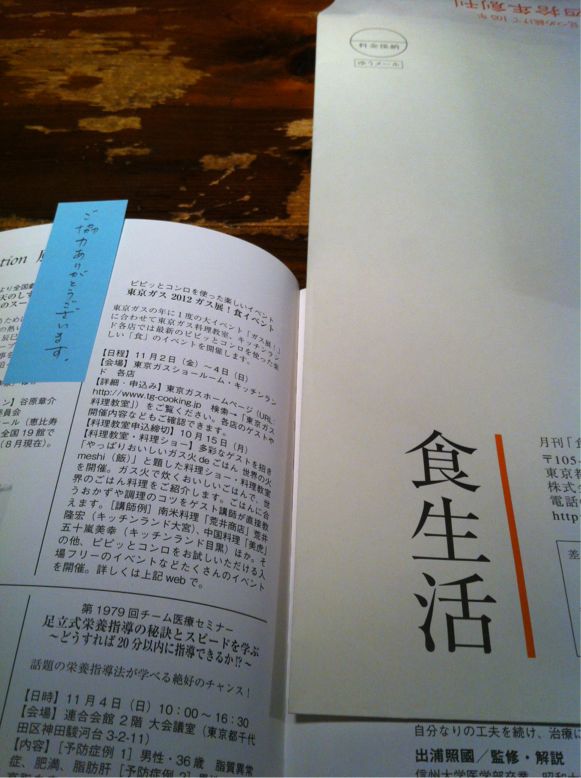 ご協力ありがとうございます。
ピピッとコンロを使った楽しいイベント
東京ガス 2012 ガス展!食イベント
東京ガスの年に1度の大イベント「ガス展」
に合わせて東京ガス料理教室、キッチンラン
ド各店では最新のピピッとコンロを使った楽
しい「食」のイベントを開催します。
【日程】11月2日(金)~4日(日)
【会場】東京ガスショールーム・キッチンラン
ド 各店
【詳細・申込み】東京ガスホームページ(URL:
http://www.tg-cooking.jp 検索→「東京ガス
料理教室」)をご覧ください。各店のゲストや
開催内容などもご確認できます。
【料理教室申込締切】10月15日(月)
【料理教室・料理ショー】多彩なゲストを招き
「やっぱりおいしいガス火 de ごはん 世界の火
meshi(飯)」と題した料理ショー・料理教室
を開催。ガス火で炊くおいしいごはんで、世
界のごはん料理をご紹介します。ごはんに合
うおかずや調理のコツをゲスト講師が直接教
えます。[講師例]南米料理「荒井商店」荒井
隆宏(キッチンランド大宮)、中国料理「美虎」
五十嵐美幸(キッチンランド目黒)ほか。そ
の他、ピピッとコンロをお試しいただける入
場フリーのイベントなどたくさんのイベント
を開催。詳しくは上記 web で。
第1979回チーム医療セミナー
足立式栄養指導の秘訣とスピードを学ぶ
~どうすれば20分以内に指導できるか!?~
話題の栄養指導法が学べる絶好のチャンス!
【日時】11月4日(日)10:00~16:30
【会場】連合会館2階 大会議室(東京都千代
田区神田駿河台3-2-11)
【内容】[予防症例1]男性・36歳 脂質異常
症、肥満、脂肪肝 [予防症例
谷原章介
員会
ール(恵比寿
全国19館で
(8月現在)。
四拾年創刊
料金後納
ゆうメール
食生活
月刊「食
〒105-
東京都
株式会
電話
http
差
自分なりの工夫を続け、治療に
出浦照國/監修・解説
信州大学医学部卒業